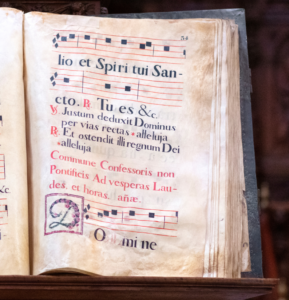 lio et Spiri tui San-
cto. R Tu es &c.
V Justum deduxit Dominus
per vias rectas alleluja
R Et ostendit illi regnum Dei
alleluja
Commune Confessoris non
Pontificis Ad vesperas Lau-
des, et horas. añæ.
D
O mi ne